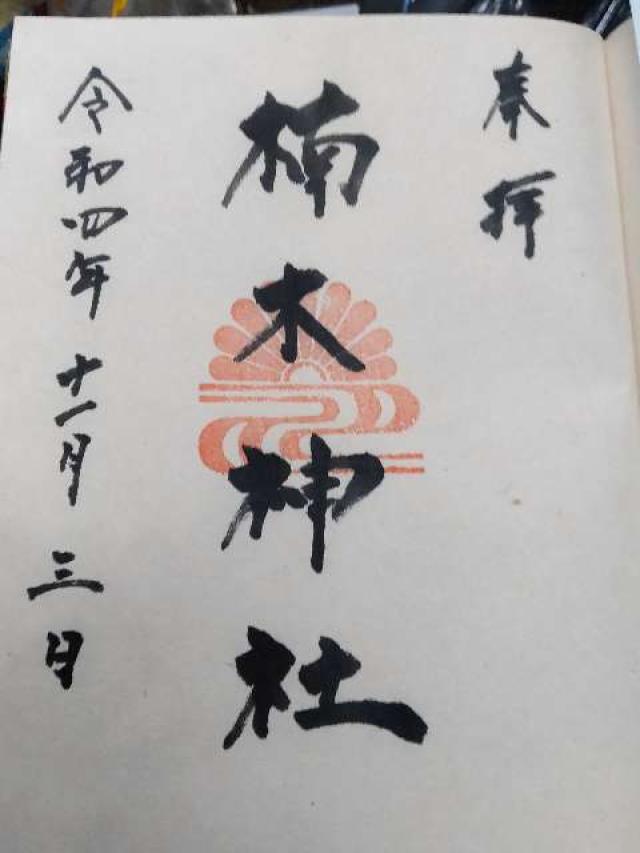 奉拝
楠木神社
令和四年十一月三日